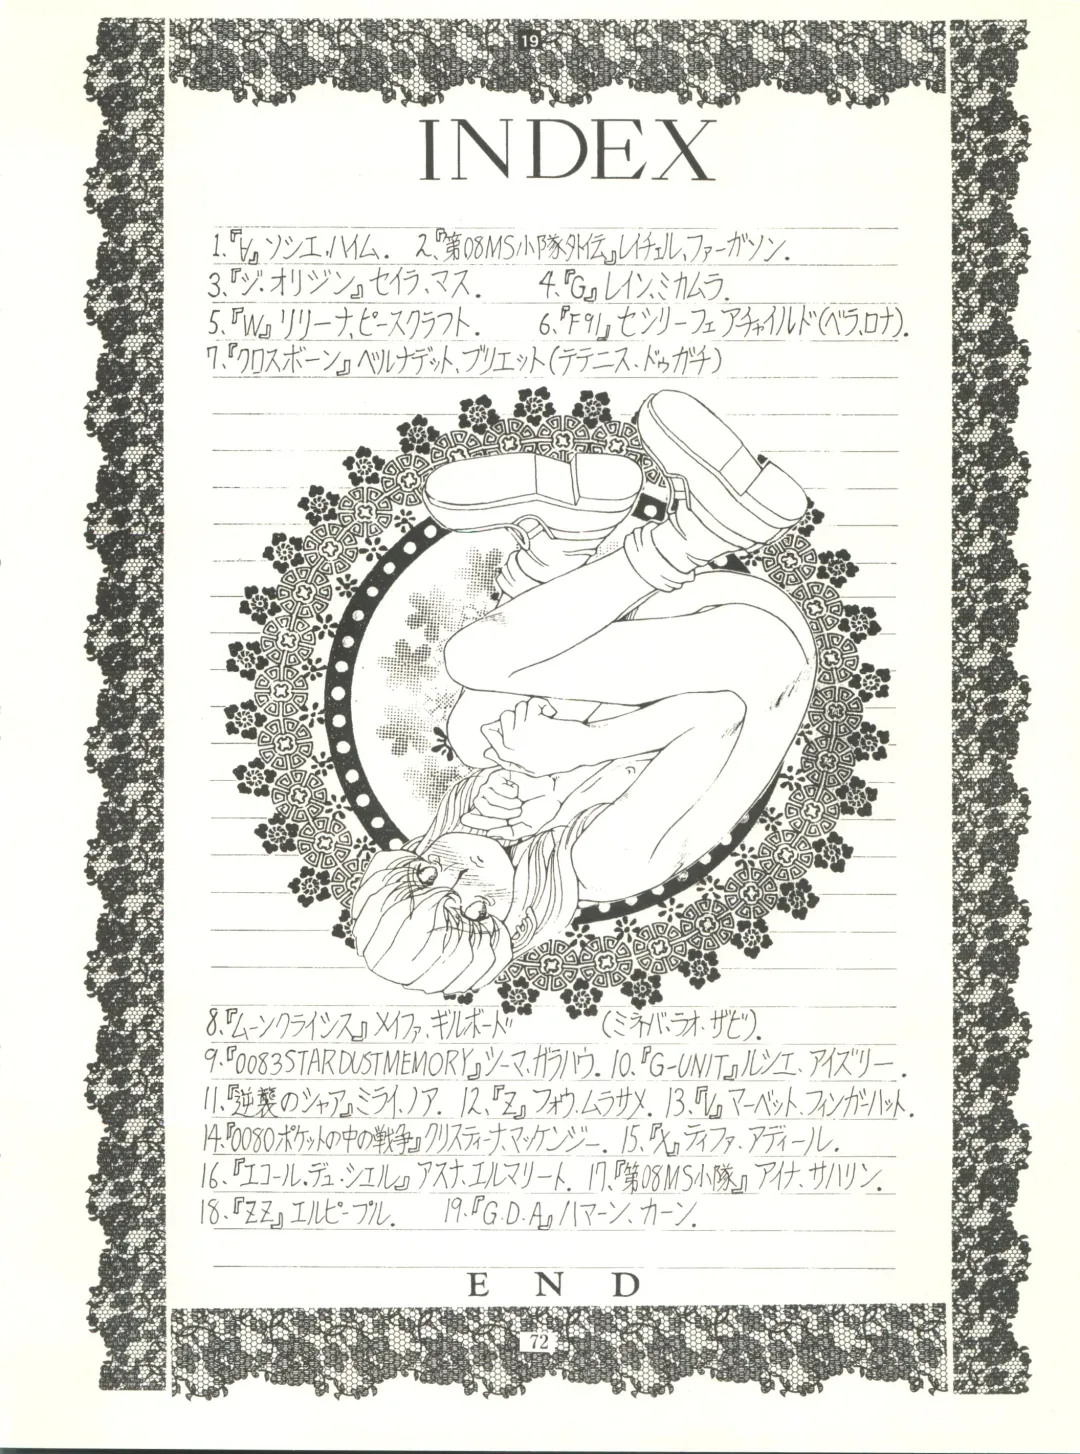 19
INDEX
1.『∀』ソシエ.ハイム. 2.『第08MS小隊外伝』レイチェル、ファーガソン.
3.『ジ.オリジン』セイラ、マス. 4.『G』レイン、ミカムラ.
5.『W』リリーナ、ピースクラフト. 6.『F91』セシリーフェアチャイルド(ベラ、ロナ).
7.『クロスボーン』ベルナデット、ブリエット(テテニス・ドゥガチ)
8.『ムーンクライシス』メイファ、ギルボード (ミネバ、ラオ・ザビ).
9.『0083STARDUSTMEMORY』シーマ、ガラハウ. 10.『G-UNIT』ルシエ、アイズリー.
11.『逆襲のシャア』ミライ、ノア. 12.『Z』フォウ、ムラサメ. 13.『V』マーベット、フィンガーハット.
14.『0080ポケットの中の戦争』クリスティーナ、マッケンジー. 15.『X』ティファ、アディール.
16.『エコール、デュ・シエル』アスナ、エルマリート. 17.『第08MS小隊』アイナ、サハリン.
18.『ZZ』エルピー・プル. 19.『G.D.A』ハマーン、カーン.
END
72